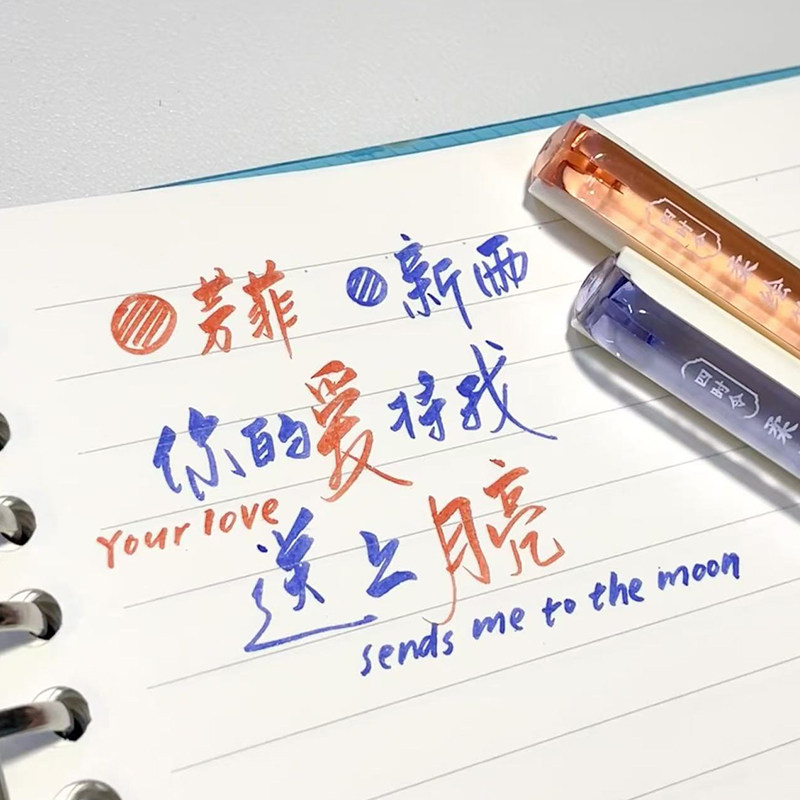 芳菲 新雨
你的爱将我
Your love
送上月亮
sends me to the moon
四时令 柔绘
四时令 柔